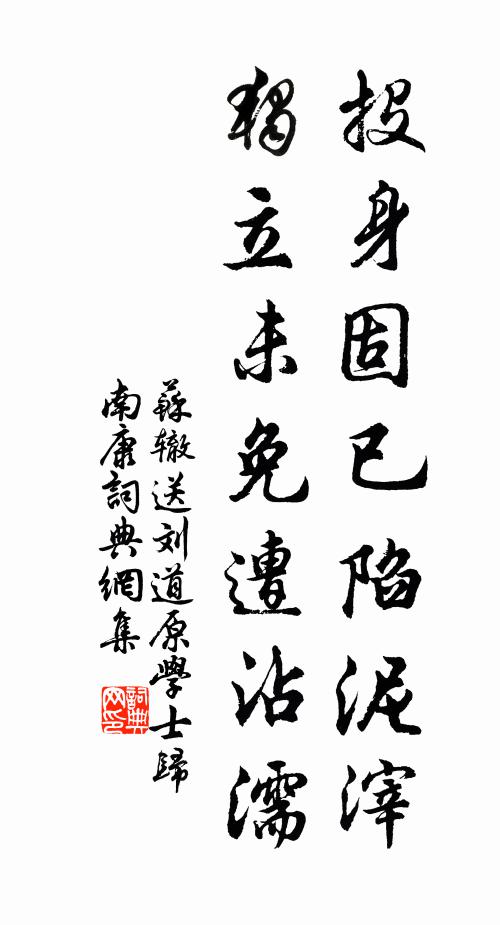 投身固已陷泥滓
獨立未免遭沾濡
蘇辙送刘道原學士歸
南康詞典網集
詞典
网印